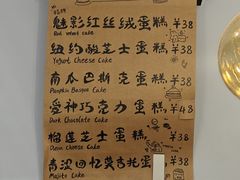 魅影红丝绒蛋糕 ¥38
Red velvet cake
纽约酸芝士蛋糕 ¥38
Yogurt Cheese Cake
南瓜巴斯克蛋糕 ¥38
Pumpkin Basque Cake
爱神巧克力蛋糕 ¥48
Dark Chocolate Cake
榴莲芝士蛋糕 ¥38
Durian cheese Cake
青沢回忆莫吉托蛋 ¥38
Mojito Cake